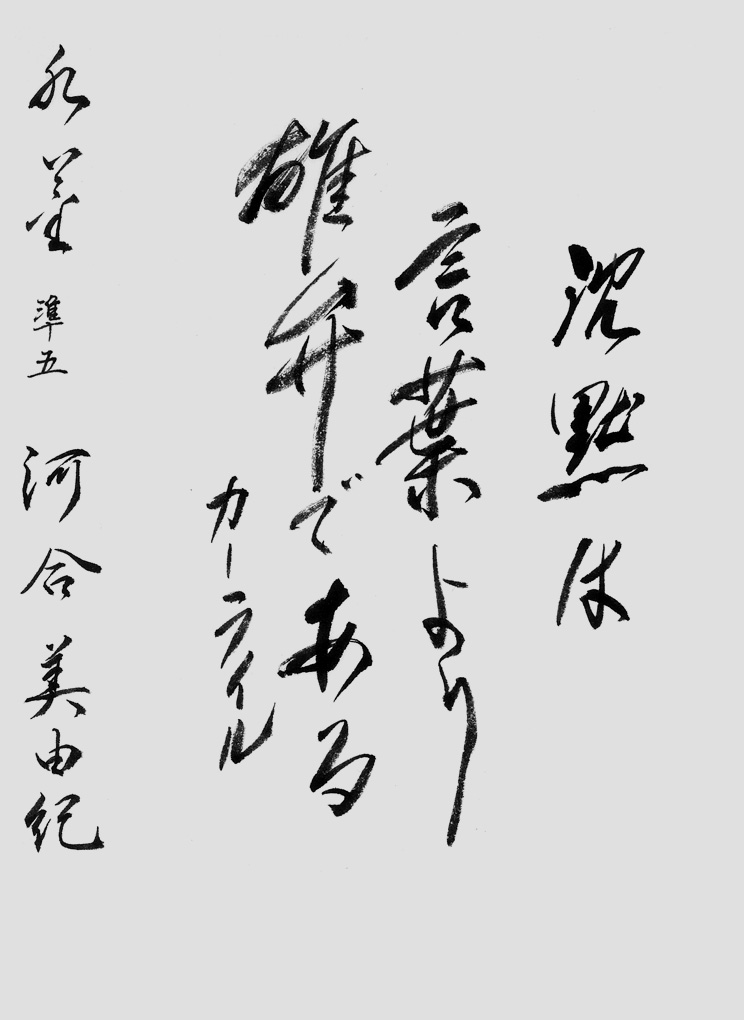 沈黙は
言葉より
雄弁である
カーライル
準五 河合美由紀